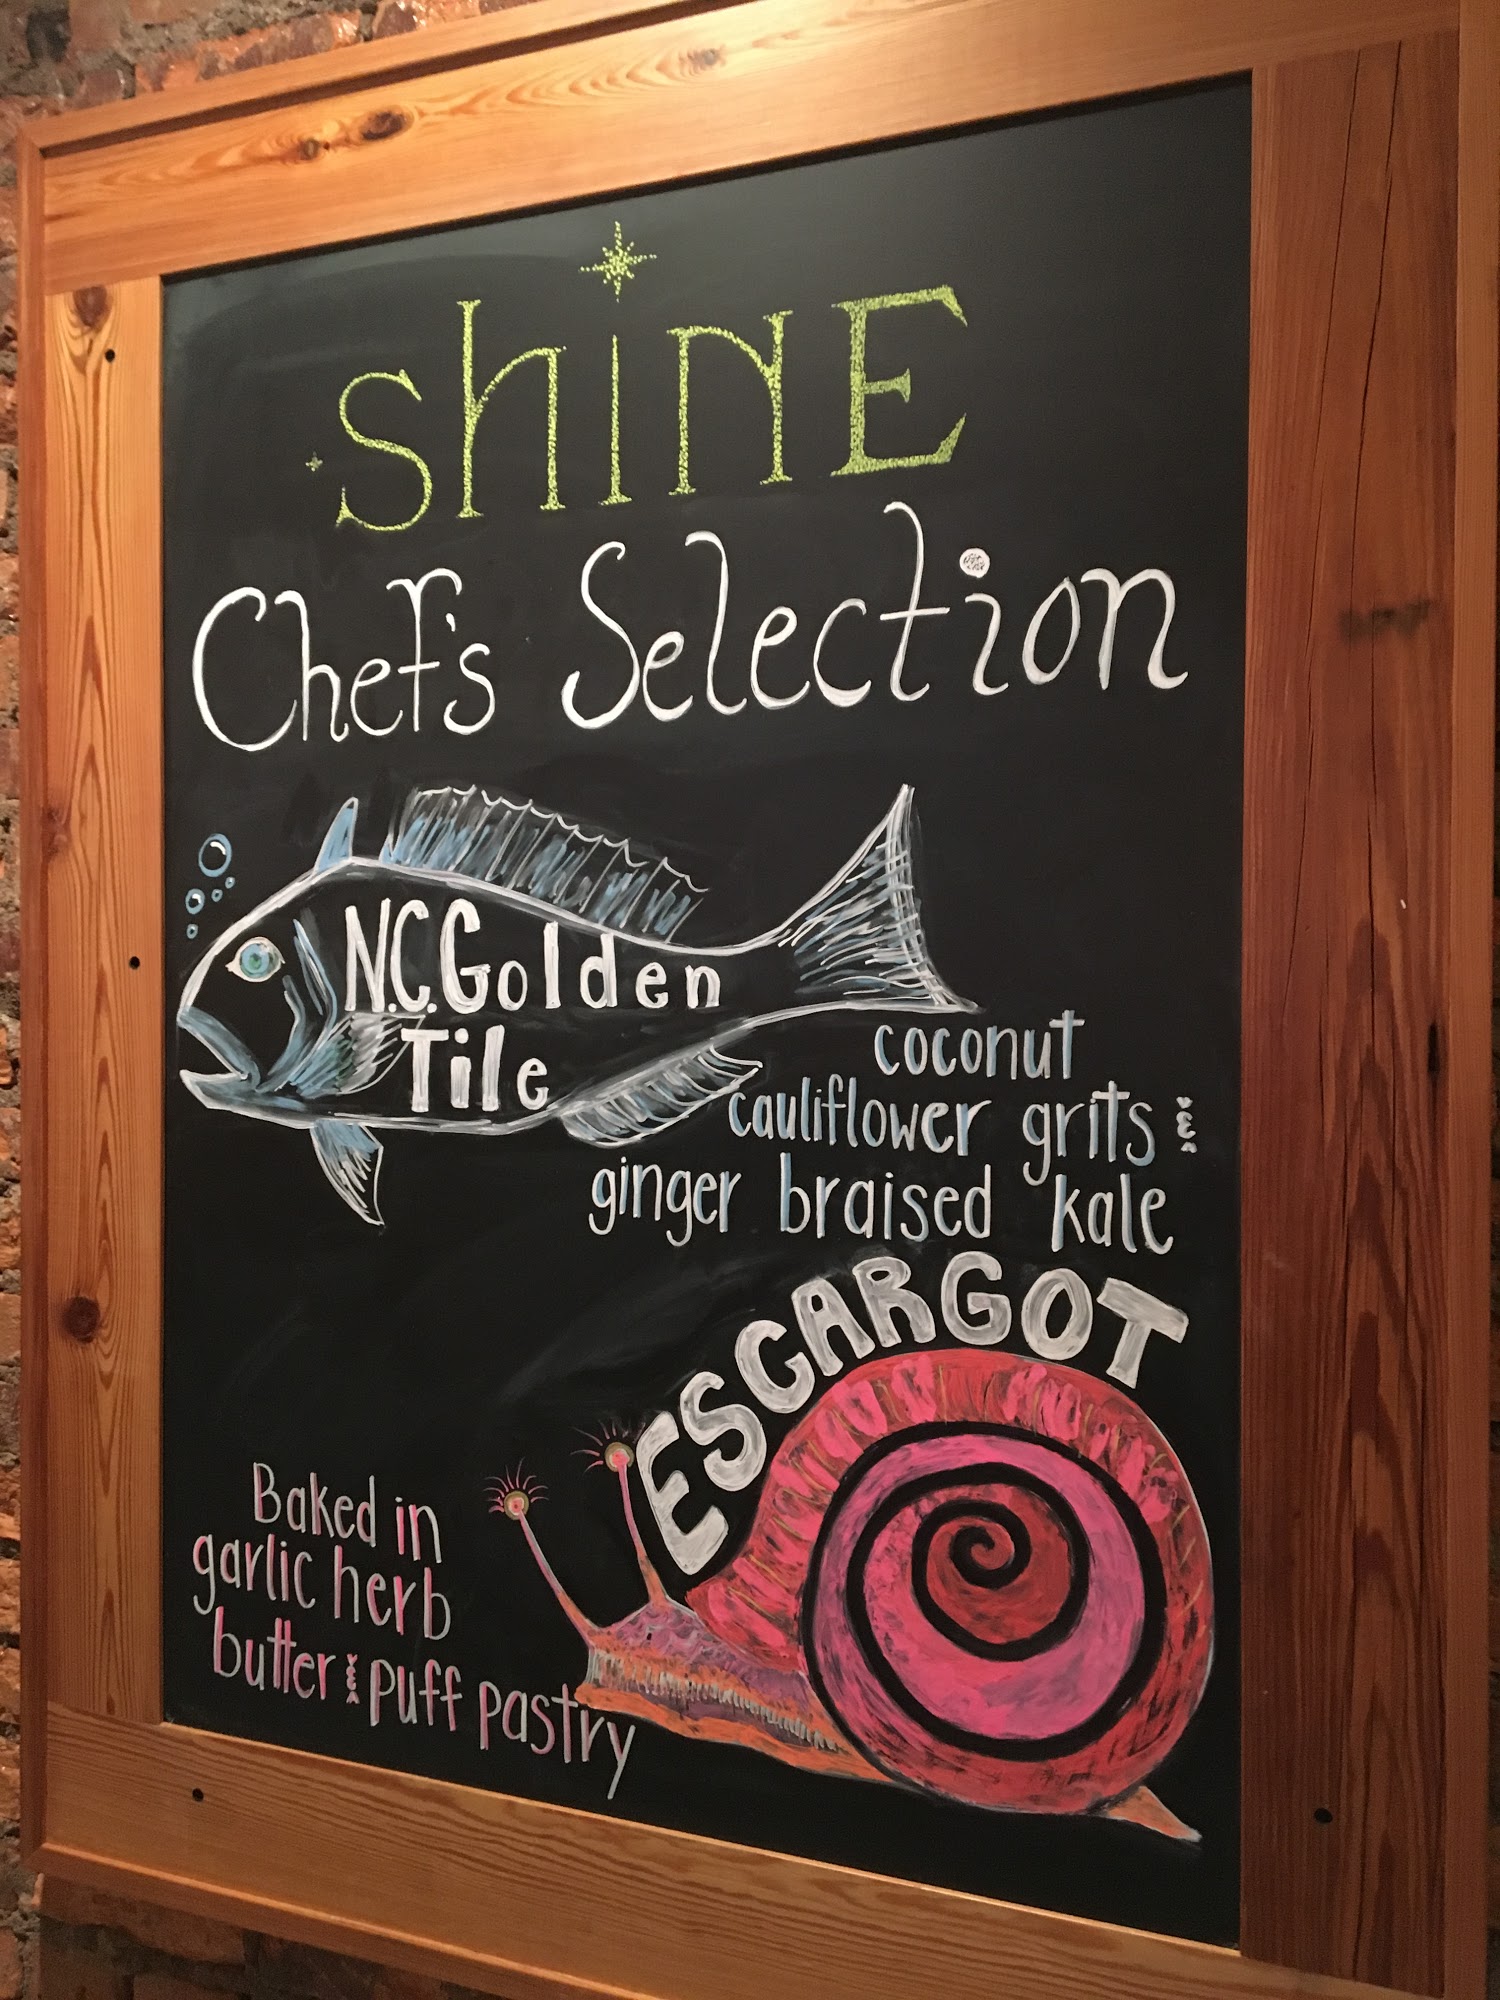 shiNE
Chef's Selection
N.C. Golden
Tile
coconut
cauliflower grits &
ginger braised kale
ESCARGOT
Baked in
garlic herb
butter & puff pastry